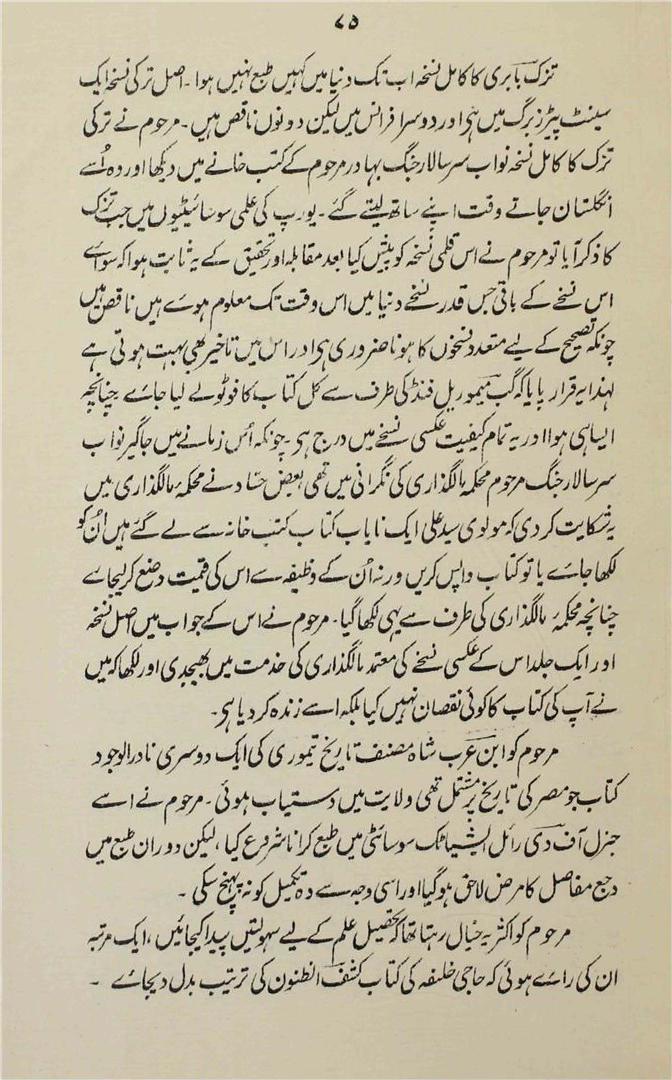 ۷۵
تزک بابری کا کامل نسخہ اب تک دنیا میں کہیں طبع نہیں ہوا۔ اصل ترکی نسخہ ایک
سینٹ پیٹرزبرگ میں ہی اور دوسرا فرانس میں لیکن دونوں ناقص ہیں۔ مرحوم نے ترکی
تزک کا کامل نسخہ نواب سر سالار جنگ بہادر مرحوم کے کتب خانے میں دیکھا اور وہ اُسے
انگلستان جاتے وقت اپنے ساتھ لیتے گئے۔ یورپ کی علمی سوسائیٹیوں میں جب تزک
کا ذکر آیا تو مرحوم نے اس قلمی نسخہ کو پیش کیا بعد مقابلہ اور تحقیق کے یہ ثابت ہوا کہ سواے
اس نسخے کے باقی جس قدر نسخے دنیا میں اس وقت تک معلوم ہوے ہیں ناقص ہیں
چونکہ تصحیح کے لیے متعدد نسخوں کا ہونا ضروری ہی اور اس میں تاخیر بھی بہت ہوتی ہے
لہذا یہ قرار پایا کہ گب میموریل فنڈ کی طرف سے کل کتاب کا فوٹو لے لیا جاے۔ چنانچہ
ایسا ہی ہوا اور یہ تمام کیفیت عکسی نسخے میں درج ہی۔ چونکہ اُس زمانے میں جاگیر نواب
سر سالار جنگ مرحوم محکمہ مالگذاری کی نگرانی میں تھی بعض حساد نے محکمۂ مالگذاری میں
یہ شکایت کر دی کہ مولوی سید علی ایک نایاب کتاب کتب خانہ سے لے گئے ہیں اُن کو
لکھا جاے یا تو کتاب واپس کریں ورنہ اُن کے وظیفہ سے اس کی قیمت وضع کر لیجاے
چنانچہ محکمۂ مالگذاری کی طرف سے یہی لکھا گیا۔ مرحوم نے اس کے جواب میں اصل نسخہ
اور ایک جلد اس کے عکسی نسخے کی معتمد مالگذاری کی خدمت میں بھیجدی اور لکھا کہ میں
نے آپ کی کتاب کا کوئی نقصان نہیں کیا بلکہ اسے زندہ کر دیا ہی۔
مرحوم کو ابن عرب شاہ مصنف تاریخ تیموری کی ایک دوسری نادر الوجود
کتاب جو مصر کی تاریخ پر مشتمل تھی ولایت میں دستیاب ہوئی۔ مرحوم نے اسے
جنرل آف دی رائل ایشیاٹک سوسائٹی میں طبع کرانا شروع کیا، لیکن دوران طبع میں
وجع مفاصل کا مرض لاحق ہو گیا اور اسی وجہ سے وہ تکمیل کو نہ پہنچ سکی۔
مرحوم کو اکثر یہ خیال رہتا تھا کہ تحصیل علم کے لیے سہولتیں پیدا کیجائیں، ایک مرتبہ
ان کی راے ہوئی کہ حاجی خلیفہ کی کتاب کشف الظنون کی ترتیب بدل دیجاے۔